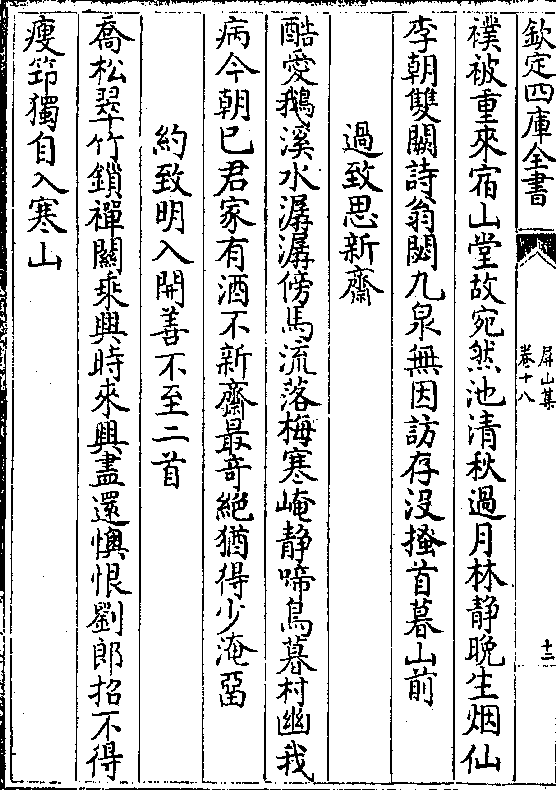 欽定四庫全書
屏山集
卷十八
十二
襆被重來宿山堂故宛然池清秋過月林静晚生烟仙
李朝雙闕詩翁閟九泉無因訪存没搔首暮山前
過致思新齋
酷愛鵝溪水潺潺傍馬流落梅寒崦静啼鳥暮村幽我
病今朝已君家有酒不新齋最竒絶猶得少淹畱
約致明入開善不至二首
喬松翠竹鎖禪關乘興時來興盡還懊恨劉郎招不得
瘦筇獨自入寒山